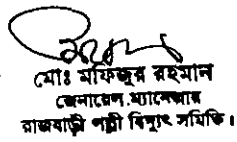 মোঃ মফিজুর রহমান
জেনারেল ম্যানেজার
রাজবাড়ী পল্লী বিদ্যুৎ সমিতি।